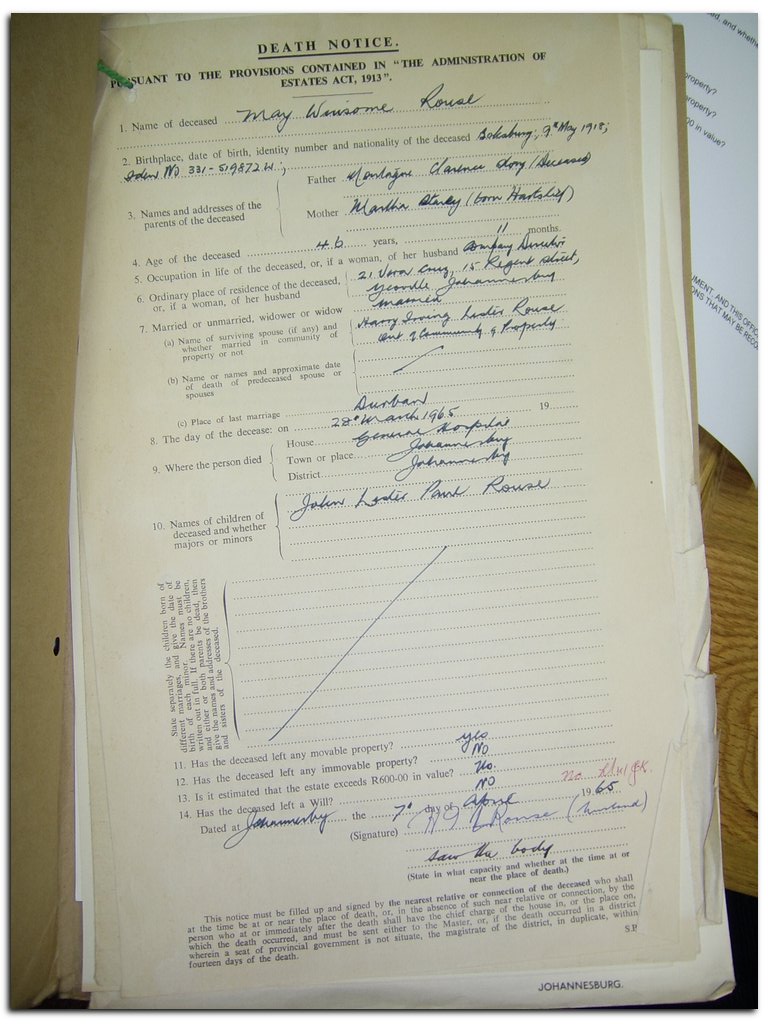 DEATH NOTICE.
PURSUANT TO THE PROVISIONS CONTAINED IN "THE ADMINISTRATION OF
ESTATES ACT, 1913".
1. Name of deceased May Winsome Rouse
2. Birthplace, date of birth, identity number and nationality of the deceased Boksburg; 7th May 1918;
Iden No 331-519872W;
3. Names and addresses of the
parents of the deceased
Father Montague Clarence (Deceased)
Mother Martha (born Hartslief)
4. Age of the deceased 46 years, 11 months.
5. Occupation in life of the deceased, or, if a woman, of her husband Company Director
6. Ordinary place of residence of the deceased,
or, if a woman, of her husband
21 Vera Cruz, 15 Regent Street,
Yeoville Johannesburg
7. Married or unmarried, widower or widow married
(a) Name of surviving spouse (if any) and
whether married in community of
property or not
Harry Irving Lester Rouse
Out of Community of Property
(b) Name or names and approximate date
of death of predeceased spouse or
spouses
(c) Place of last marriage Durban
8. The day of the decease: on 28th March 1965 19
9. Where the person died
House General Hospital
Town or place Johannesburg
District Johannesburg
10. Names of children of
deceased and whether
majors or minors
John Lester Paul Rouse
State separately the children born of
different marriages, and give the date of
birth of each minor. Names must be
written out in full. If there are no children,
and either or both parents be dead, then
give the names and addresses of the brothers
and sisters of the deceased.
11. Has the deceased left any movable property? yes
12. Has the deceased left any immovable property? No
13. Is it estimated that the estate exceeds R600-00 in value? No.
14. Has the deceased left a Will? NO
Dated at Johannesburg the 7th day of April 1965
(Signature) Rouse (husband)
saw the body
(State in what capacity and whether at the time at or
near the place of death.)
This notice must be filled up and signed by the nearest relative or connection of the deceased who shall
at the time be at or near the place of death, or, in the absence of such near relative or connection, by the
person who at or immediately after the death shall have the chief charge of the house in, or the place on,
which the death occurred, and must be sent either to the Master, or, if the death occurred in a district
wherein a seat of provincial government is not situate, the magistrate of the district, in duplicate, within
fourteen days of the death.
S.P.
JOHANNESBURG.
and whethe
property?
property?
00 in value?